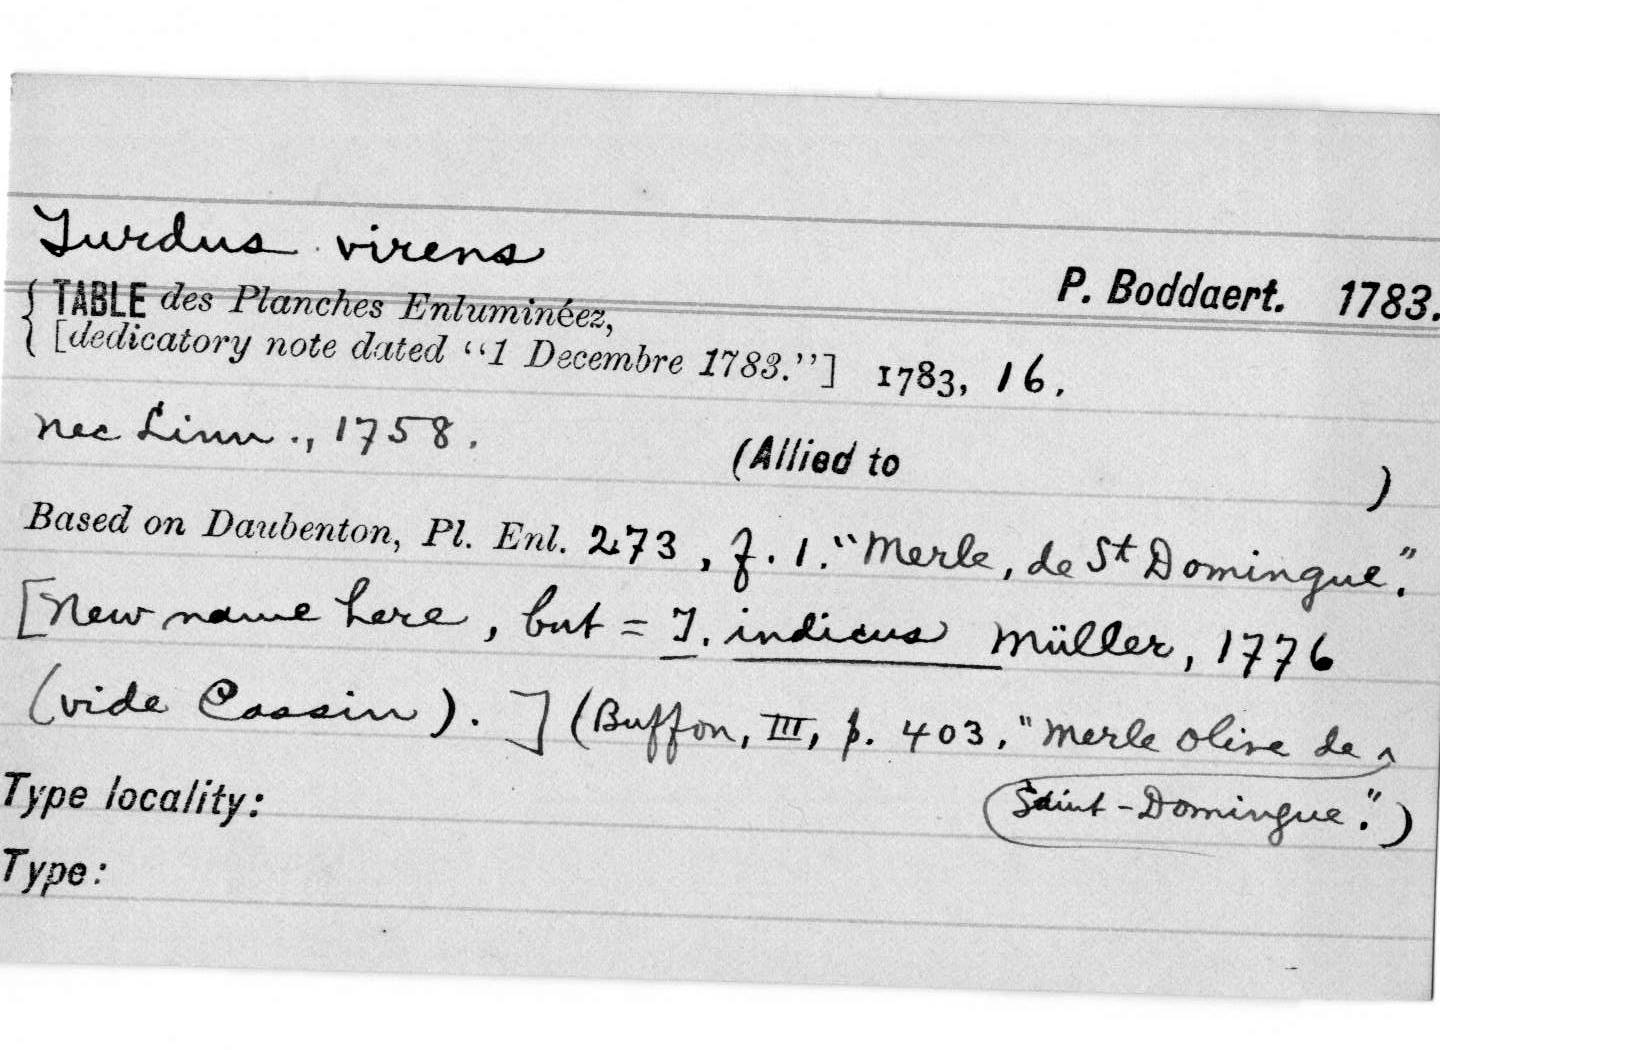 Turdus virens
P. Boddaert. 1783.
{ TABLE des Planches Enluminéez,
[dedicatory note dated “1 Decembre 1783.”] 1783, 16.
nec Linn., 1758.
(Allied to )
Based on Daubenton, Pl. Enl. 273, f. 1. "Merle, de St Domingue".
[New name here, but = T. indicus Müller, 1776
(vide Cassin). ] (Buffon, III, p. 403, "Merle olive de ^
Saint-Domingue.")
Type locality:
Type: